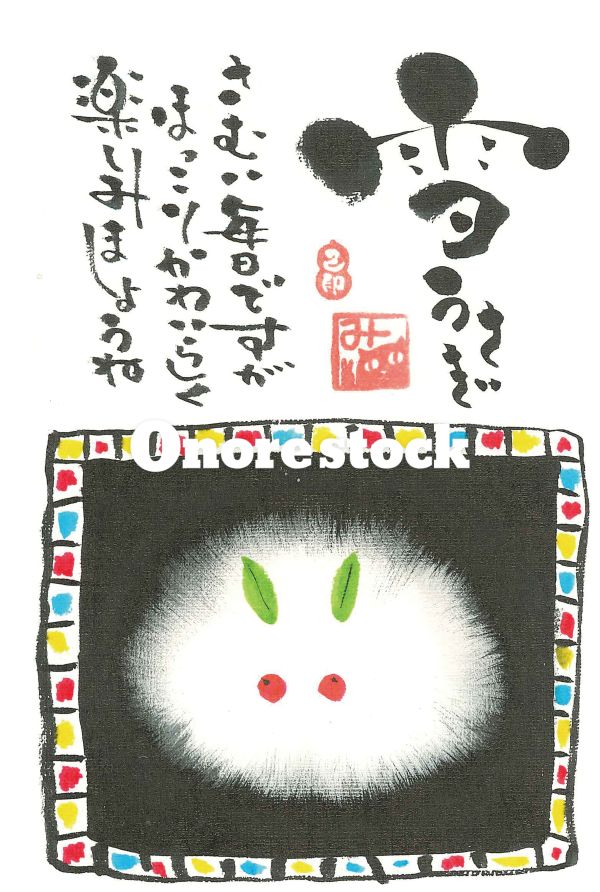 雪うさぎ
さむい毎日ですが
ほっこりかわいらしく
楽しみましょうね
み
Onorestock